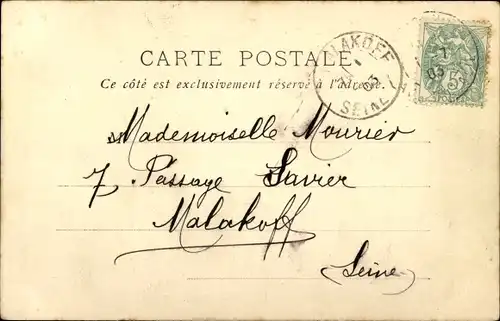 CARTE POSTALE
Ce côté est exclusivement réservé à l'adresse.
MALAKOFF
03
SEINE
7
03
5c
Mademoiselle Mourier
7, Passage Larier
Malakoff
Seine